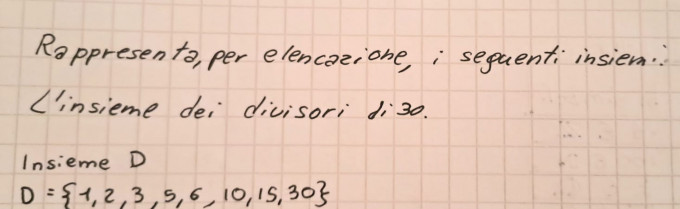 Rappresenta, per elencazione, i seguenti insiemi:
L'insieme dei divisori di 30.
Insieme D
D = {1, 2, 3, 5, 6, 10, 15, 30}